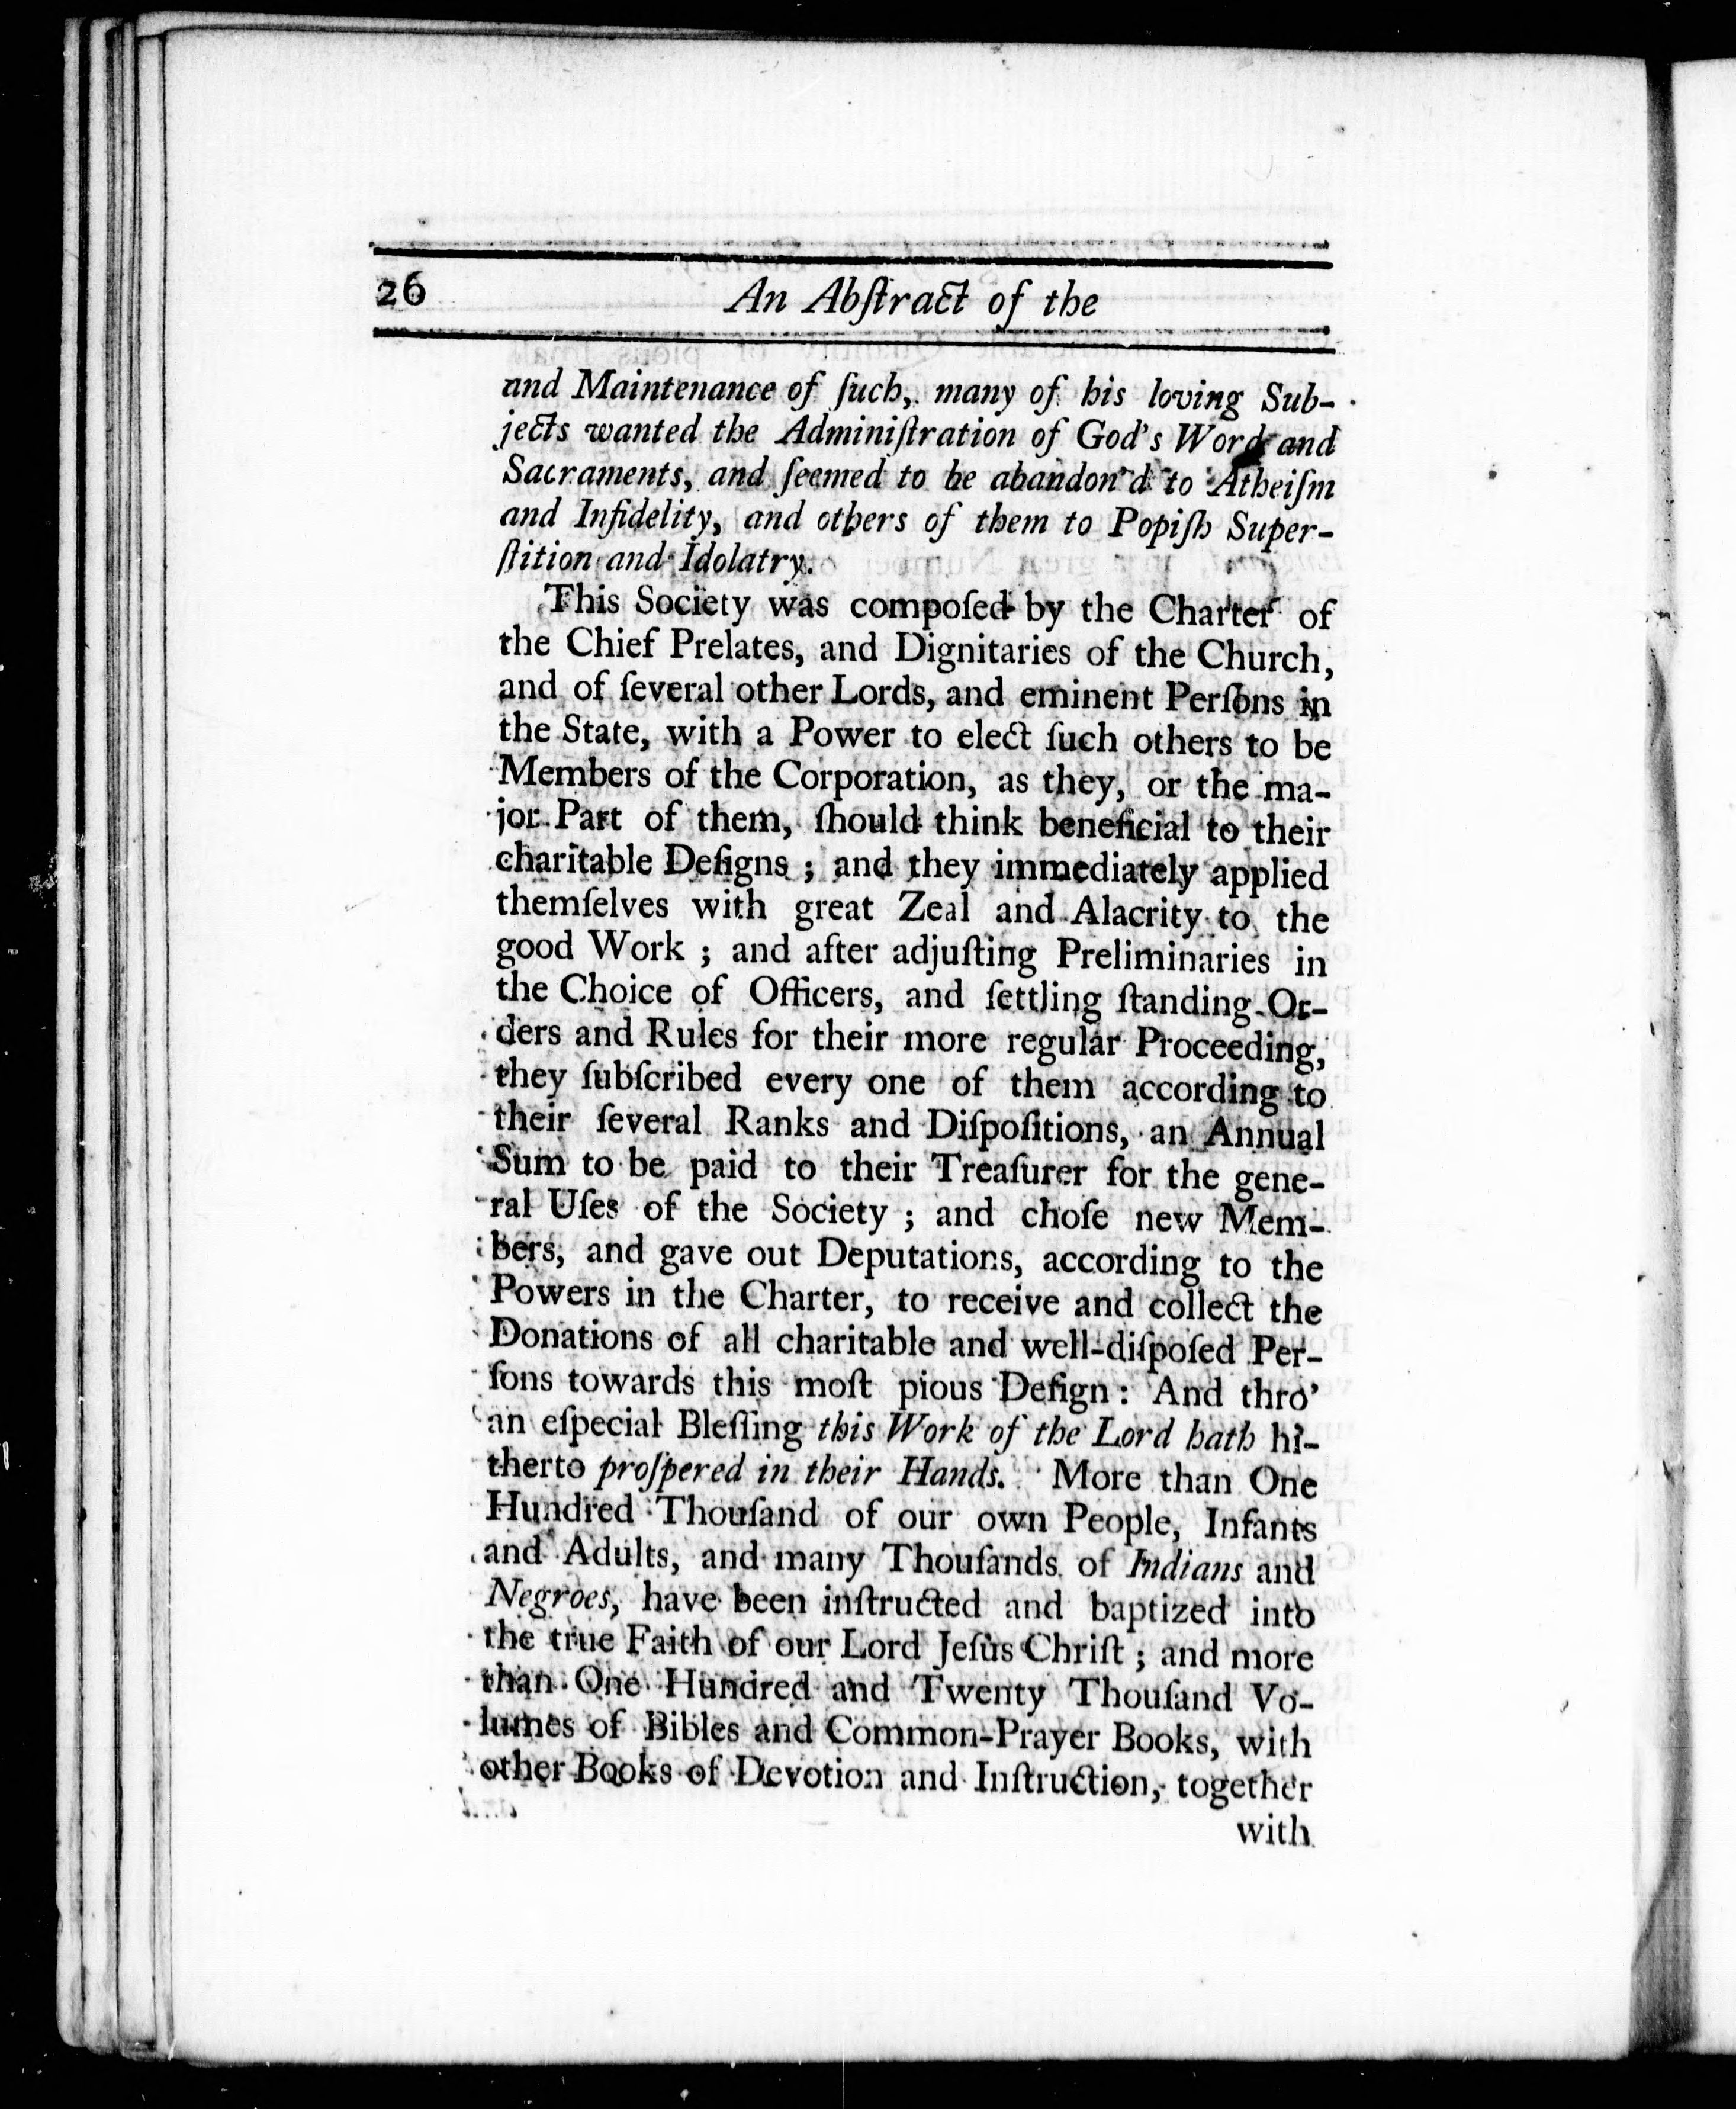 26 An Abſtract of the
and Maintenance of ſuch, many of his loving Sub-
jects wanted the Adminiſtration of God's Word and
Sacraments, and ſeemed to be abandon'd to Atheiſm
and Infidelity, and others of them to Popiſh Super-
ſtition and Idolatry.
This Society was compoſed by the Charter of
the Chief Prelates, and Dignitaries of the Church,
and of ſeveral other Lords, and eminent Perſons in
the State, with a Power to elect ſuch others to be
Members of the Corporation, as they, or the ma-
jor Part of them, ſhould think beneficial to their
charitable Deſigns ; and they immediately applied
themſelves with great Zeal and Alacrity to the
good Work ; and after adjuſting Preliminaries in
the Choice of Officers, and ſettling ſtanding Or-
ders and Rules for their more regular Proceeding,
they ſubſcribed every one of them according to
their ſeveral Ranks and Diſpoſitions, an Annual
Sum to be paid to their Treaſurer for the gene-
ral Uſes of the Society ; and choſe new Mem-
bers, and gave out Deputations, according to the
Powers in the Charter, to receive and collect the
Donations of all charitable and well-diſpoſed Per-
ſons towards this moſt pious Deſign : And thro'
an eſpecial Bleſſing this Work of the Lord hath hi-
therto proſpered in their Hands. More than One
Hundred Thouſand of our own People, Infants
and Adults, and many Thouſands of Indians and
Negroes, have been inſtructed and baptized into
the true Faith of our Lord Jeſus Chriſt ; and more
than One Hundred and Twenty Thouſand Vo-
lumes of Bibles and Common-Prayer Books, with
other Books of Devotion and Inſtruction, together
with